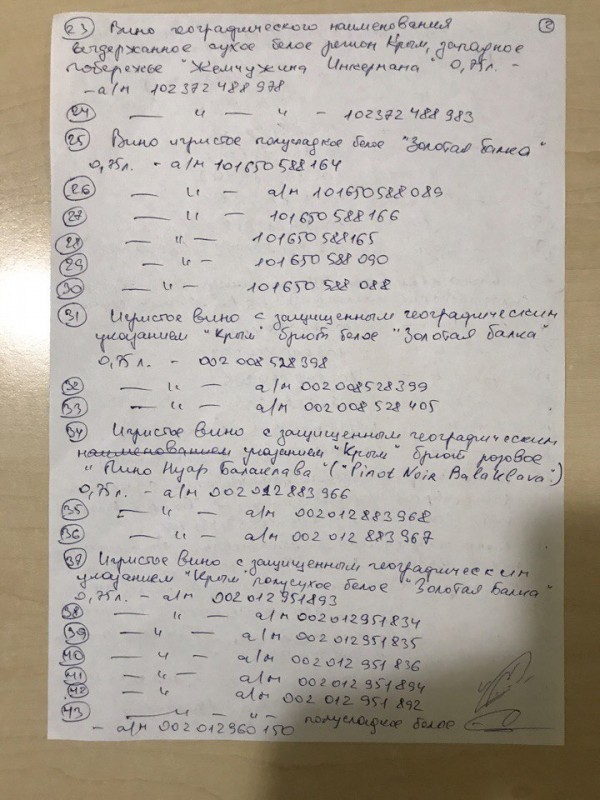 23) Вино географического наименования ②
выдержанное сухое белое регион Крым, западное
побережье "Жемчужина Инкермана" 0,75л. -
- а/м 102372488978
24 — " — " - 102372488983
25 Вино игристое полусладкое белое "Золотая балка"
0,75л. - а/м 101650588164
26 — " — а/м 101650588089
27 — " — 101650588166
28 — " — 101650588165
29 — " — 101650588090
30 — " — 101650588088
31 Игристое вино с защищенным географическим
указанием "Крым" брют белое "Золотая балка"
0,75л. - 002008528398
32 — " — а/м 002008528399
33 — " — а/м 002008528405
34 Игристое вино с защищенным географическим
наименованием указанием "Крым" брют розовое
"Пино Нуар Балаклава" ("Pinot Noir Balaklava")
0,75л. - а/м 002012883966
35 — " — а/м 002012883968
36 — " — а/м 002012883967
37 Игристое вино с защищенным географическим
указанием "Крым" полусухое белое "Золотая Балка"
0,75л. - а/м 002012951893
38 — " — а/м 002012951834
39 — " — а/м 002012951835
40 — " — а/м 002012951836
41 — " — а/м 002012951894
42 — " а/м 002012951892
43 — " — " - полусладкое белое
- а/м 002012960150